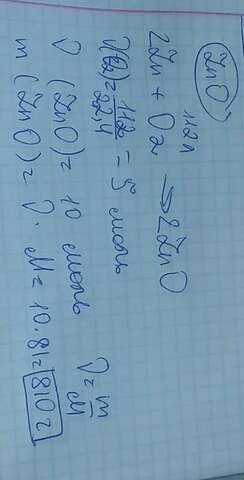 ZnO
112л
2Zn + O₂ → 2ZnO
ν(O₂) = 112/22,4 = 5 моль
ν (ZnO) = 10 моль
ν = m/M
m (ZnO) = ν · M = 10 · 81 = 810 г